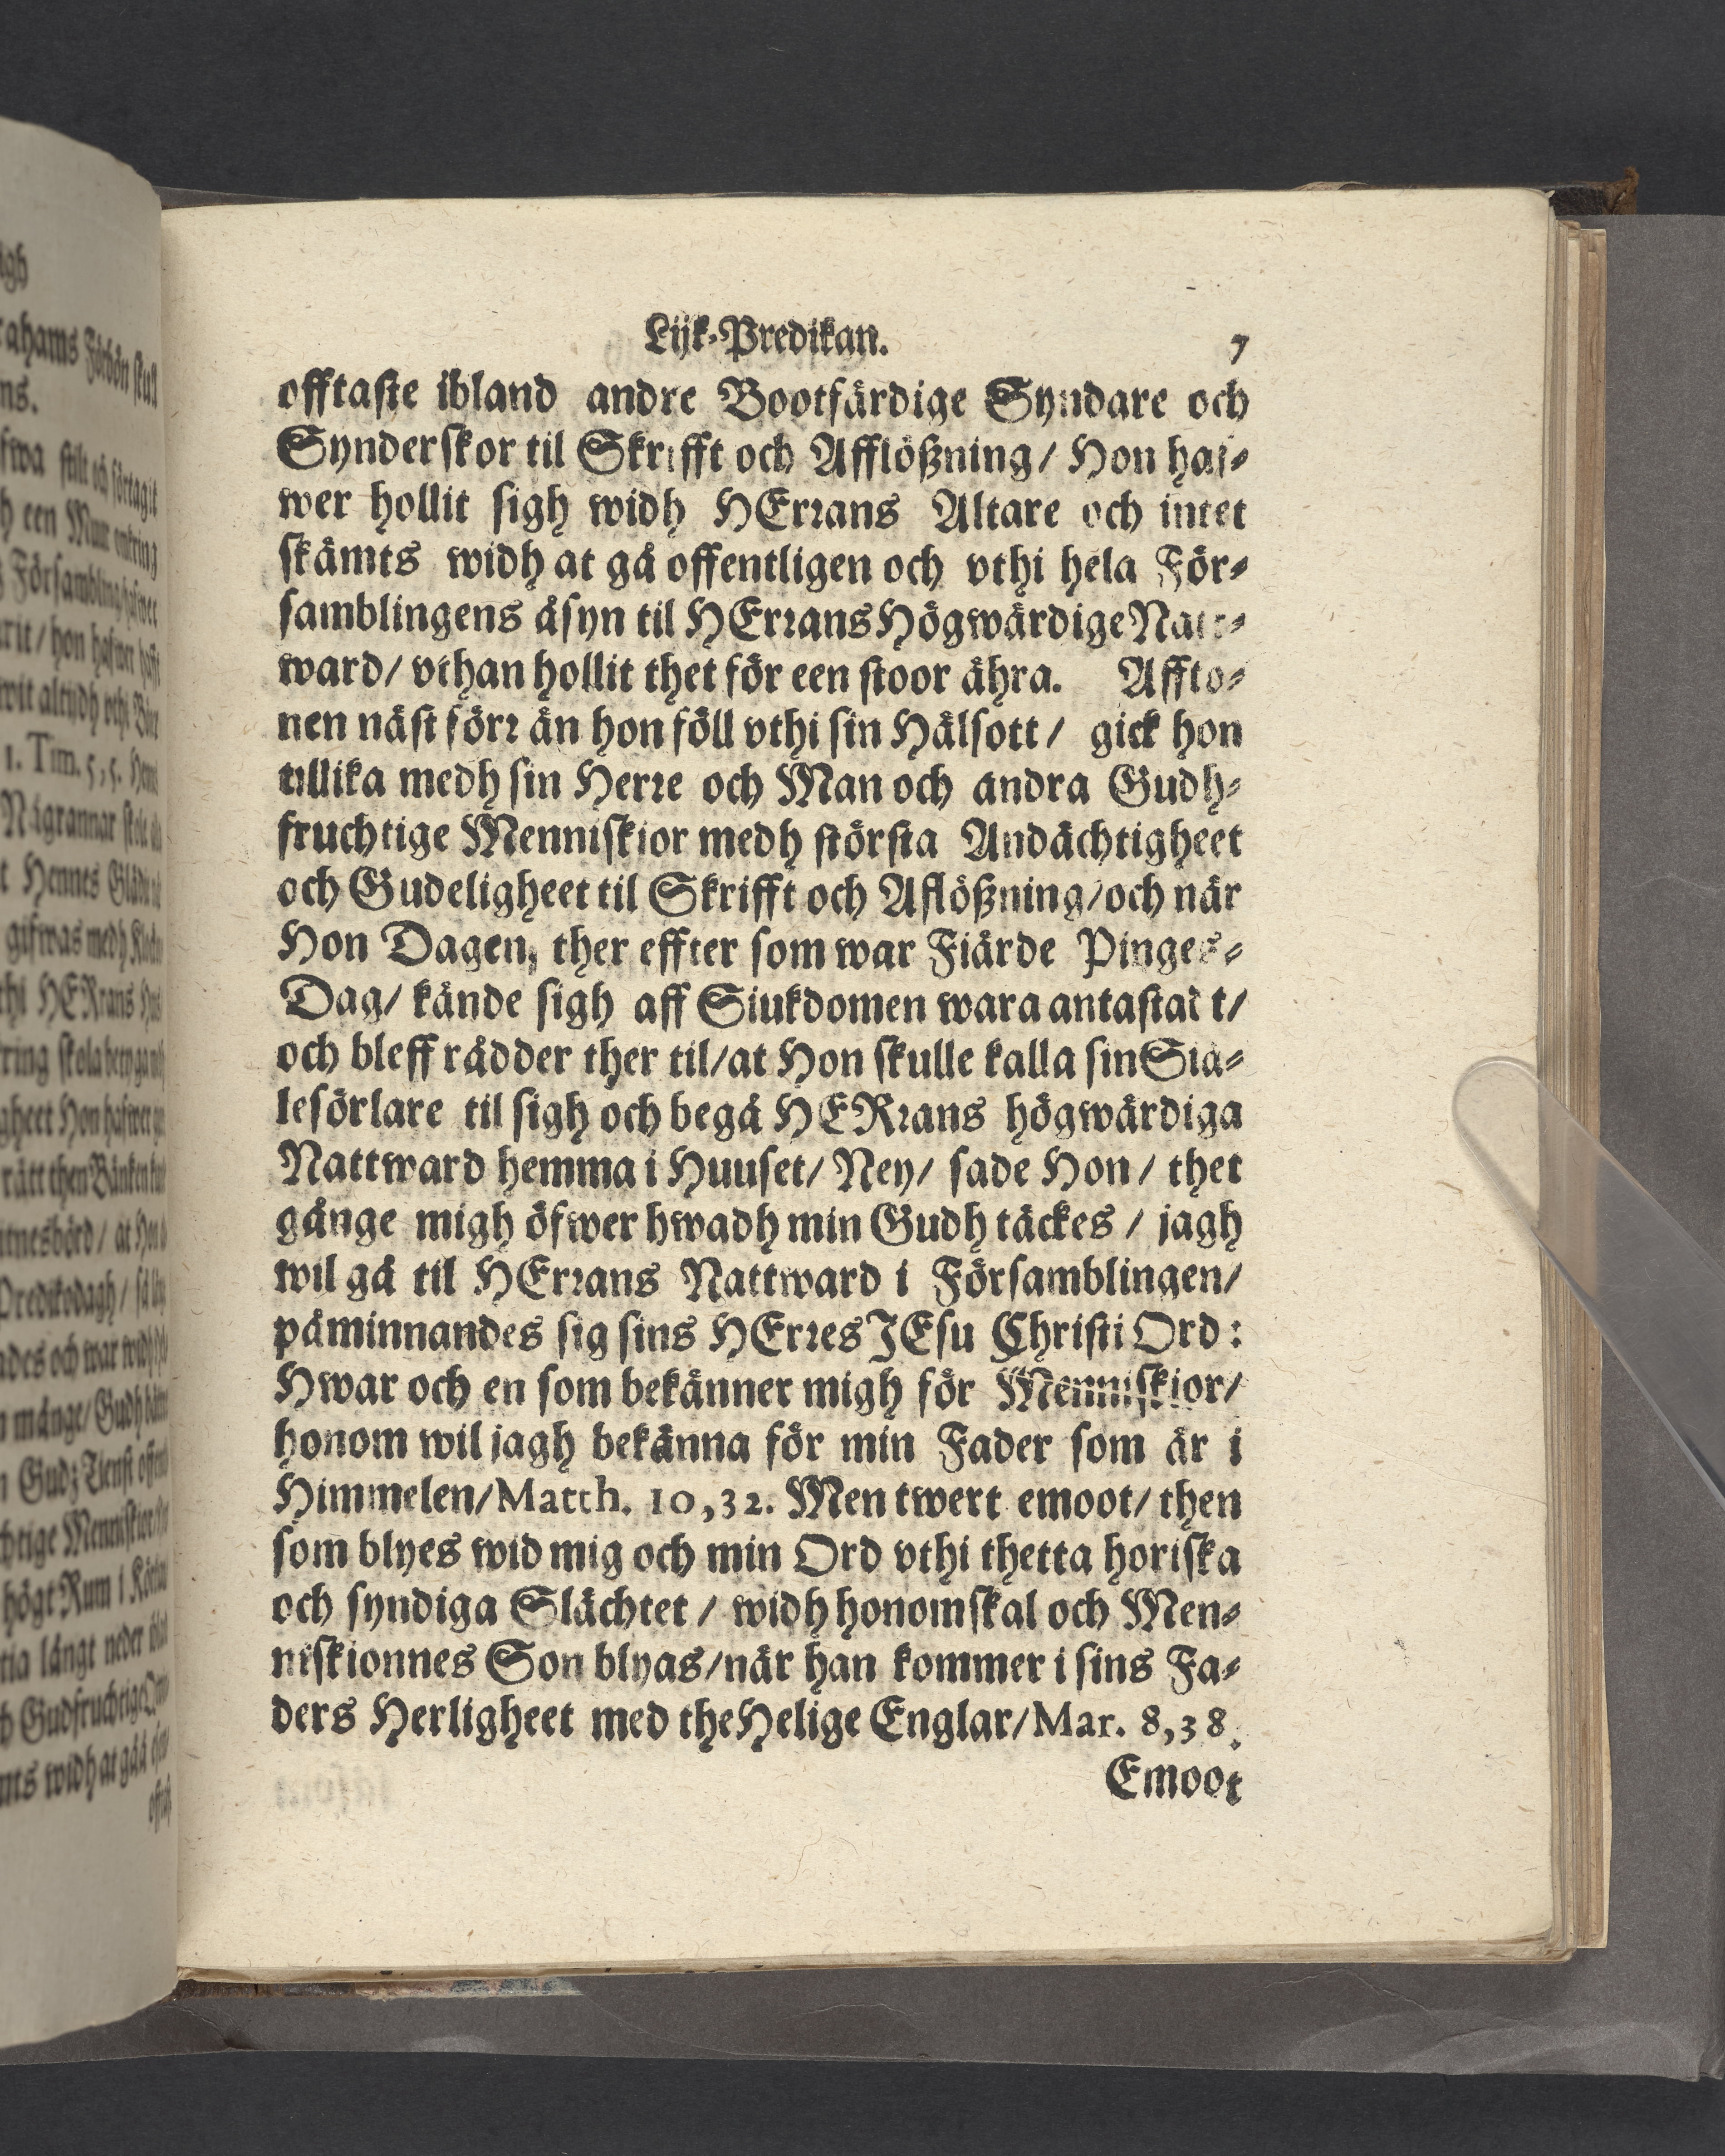 Lijk-Predikan. 7
offtaste ibland andre Bootfärdige Syndare och
Synderskor til Skrifft och Afflößning/ Hon haf-
wer hollit sigh widh HErrans Altare och intet
skämts widh at gå offentligen och vthi hela För-
samblingens åsyn til HErrans Högwärdige Natt-
ward/ vthan hollit thet för een stoor ähra. Affto-
nen näst förr än hon föll vthi sin Hälsott/ gick hon
tillika medh sin Herre och Man och andra Gudh-
fruchtige Menniskior medh största Andächtigheet
och Gudeligheet til Skrifft och Aflößning/och när
Hon Dagen, ther effter som war Fiärde Pinges-
Dag/ kände sigh aff Siukdomen wara antastat t/
och bleff rådder ther til/at Hon skulle kalla sin Siä-
lesörlare til sigh och begå HERrans högwärdiga
Nattward hemma i Huuset/ Ney/ sade Hon/ thet
gånge migh öfwer hwadh min Gudh täckes/ jagh
wil gå til HErrans Nattward i Församblingen/
påminnandes sig sins HErres JEsu Christi Ord:
Hwar och en som bekänner migh för Menniskior/
honom wil jagh bekänna för min Fader som är i
Himmelen/Matth. 10,32. Men twert emoot/ then
som blyes wid mig och min Ord vthi thetta horiska
och syndiga Slächtet/ widh honom skal och Men-
niskionnes Son blyas/när han kommer i sins Fa-
ders Herligheet med the Helige Englar/Mar. 8,38.
Emoot